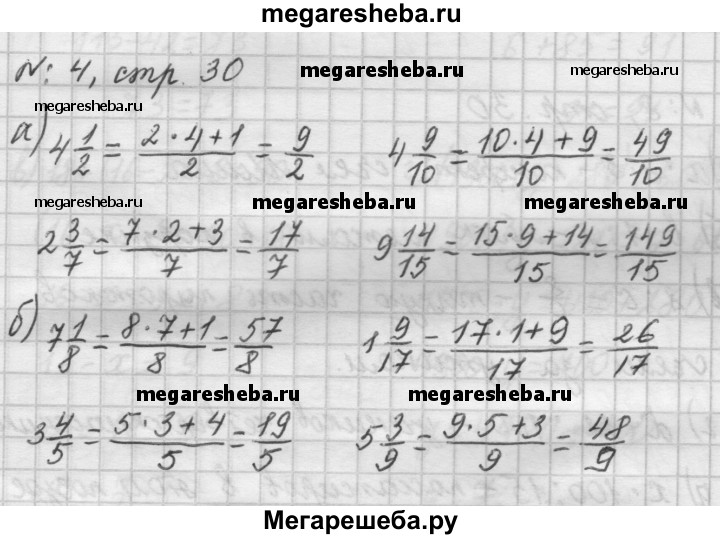 megaresheba.ru
№: 4, стр. 30 megaresheba.ru megaresheba.ru
megaresheba.ru
а) 4 1/2 = (2·4+1)/2 = 9/2 4 9/10 = (10·4+9)/10 = 49/10
megaresheba.ru megaresheba.ru megaresheba.ru
2 3/7 = (7·2+3)/7 = 17/7 9 14/15 = (15·9+14)/15 = 149/15
б) 7 1/8 = (8·7+1)/8 = 57/8 1 9/17 = (17·1+9)/17 = 26/17
megaresheba.ru megaresheba.ru
3 4/5 = (5·3+4)/5 = 19/5 5 3/9 = (9·5+3)/9 = 48/9
Мегарешеба.ру